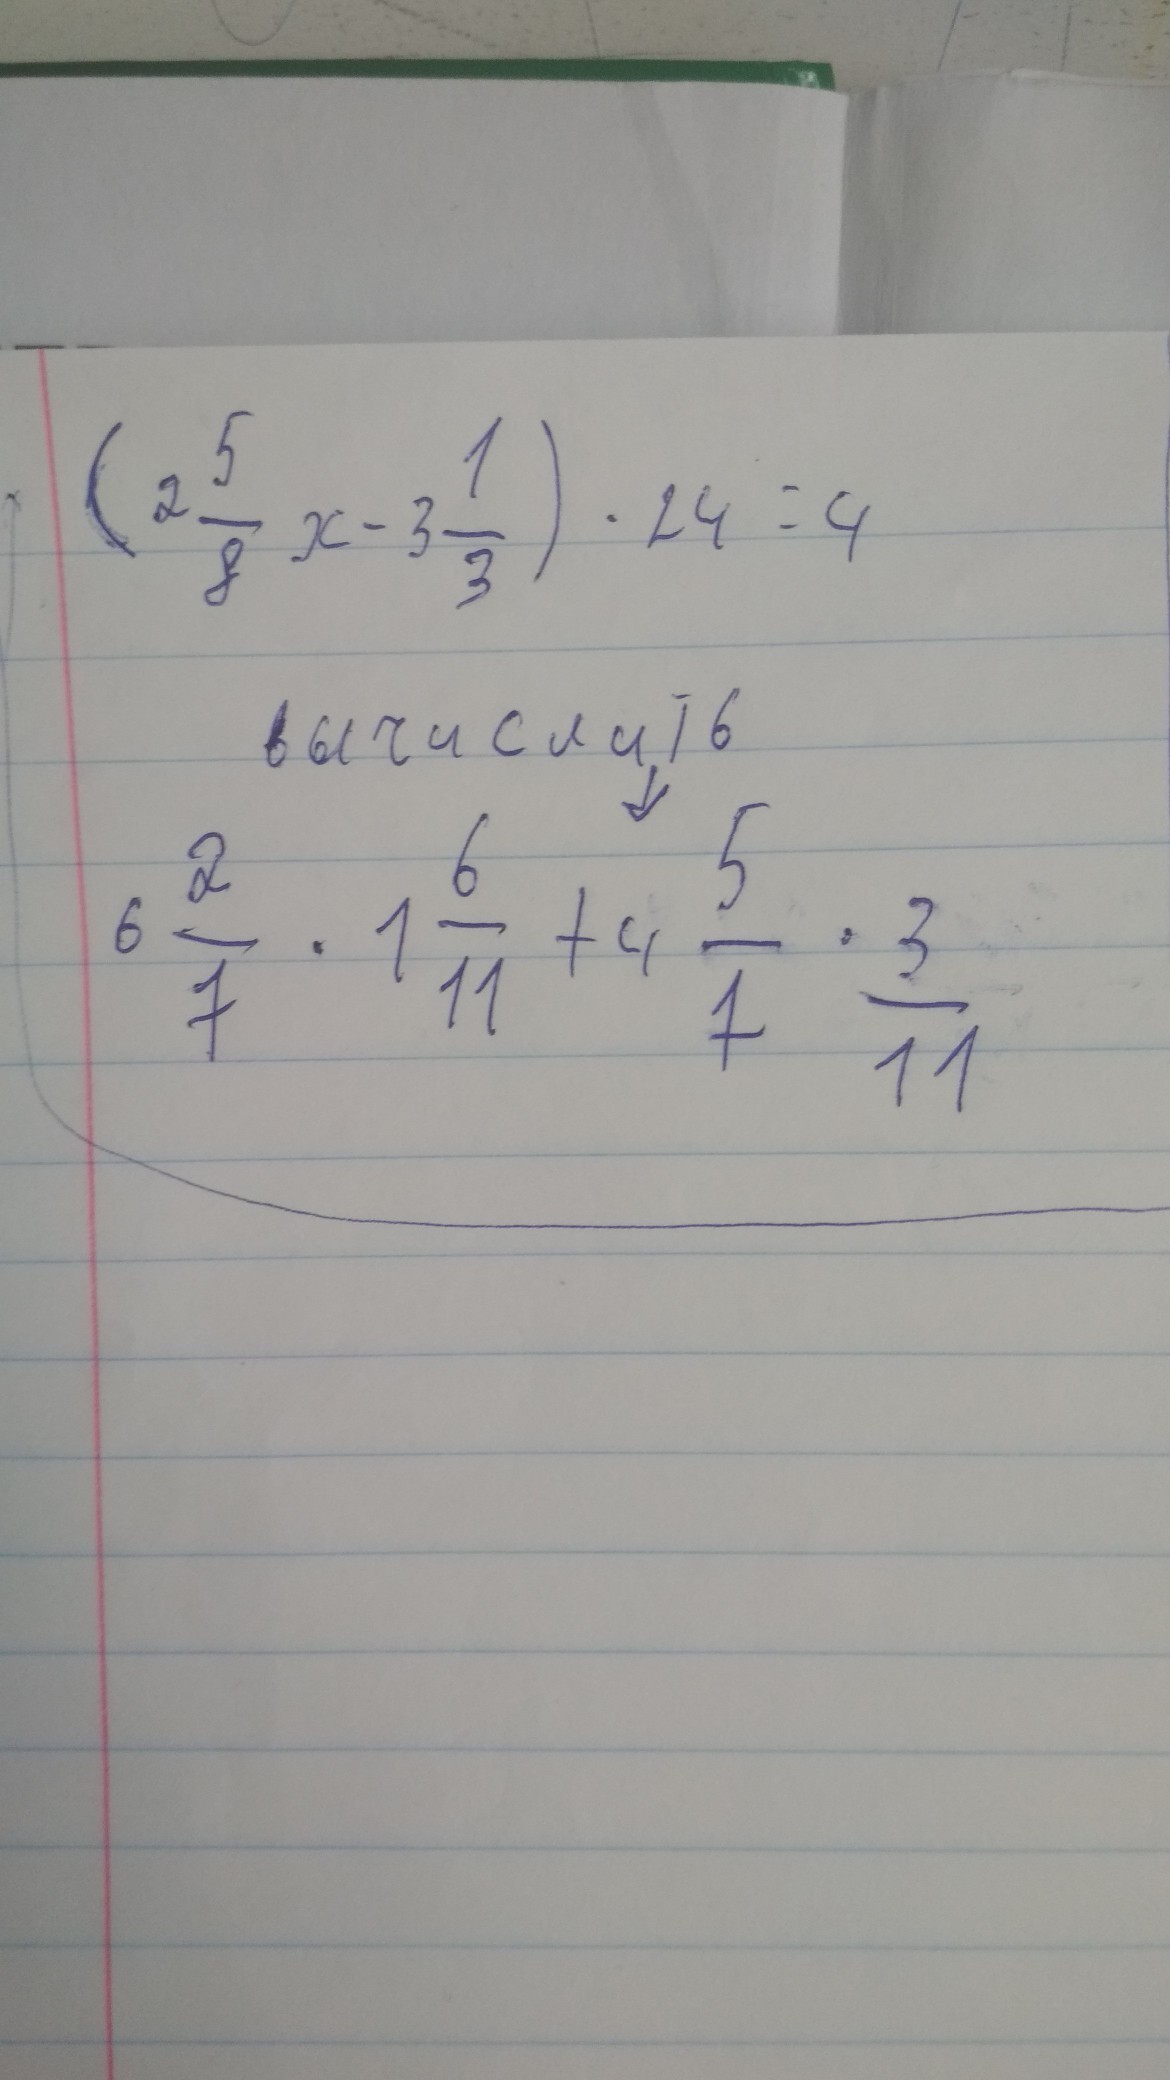 (2 5/8 x - 3 1/3) · 24 = 4
вычислить
↓
6 2/7 · 1 6/11 + 4 5/7 · 3/11